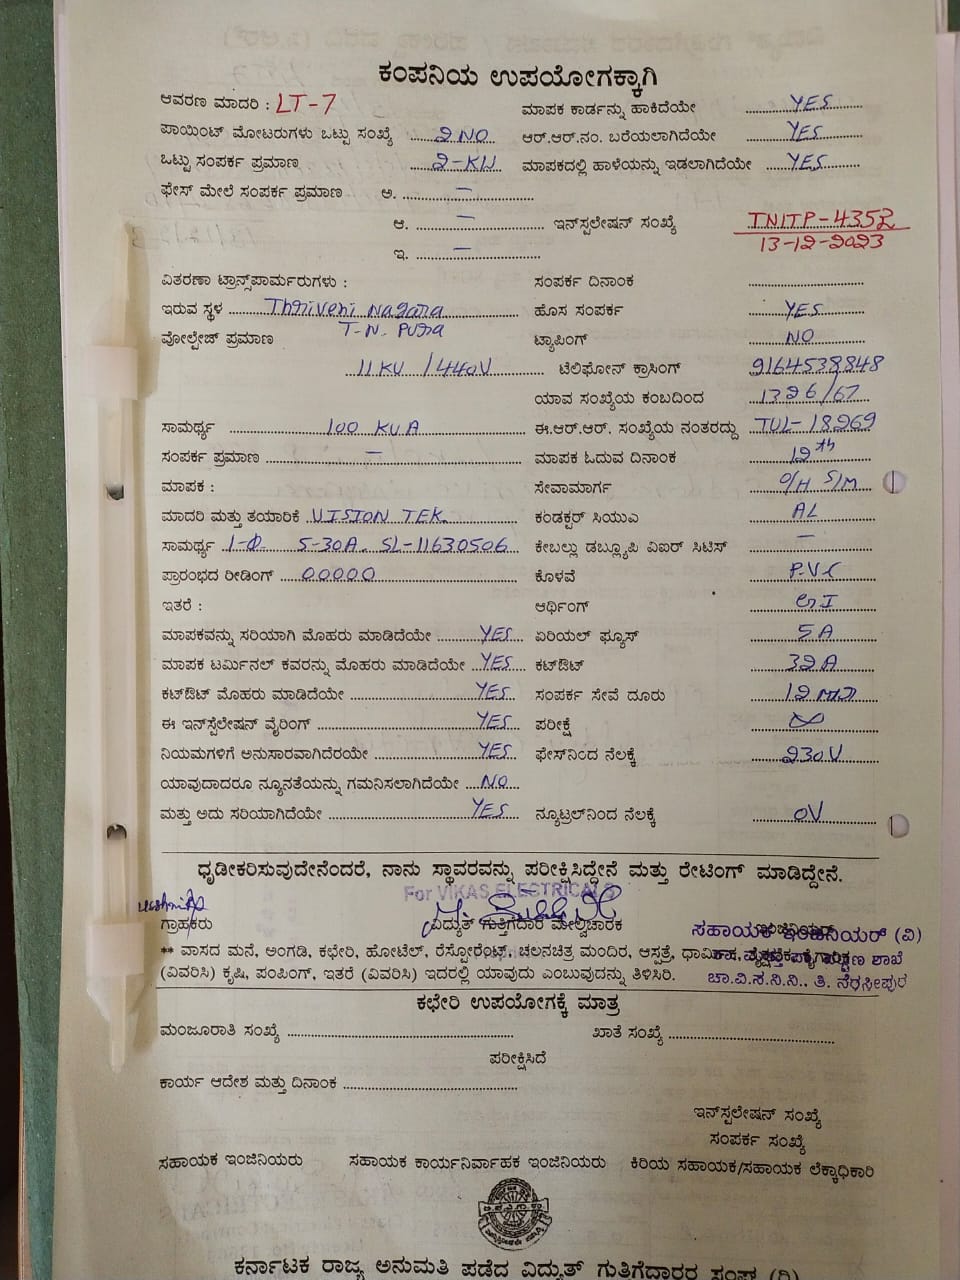 ಕಂಪನಿಯ ಉಪಯೋಗಕ್ಕಾಗಿ
ಆವರಣ ಮಾದರಿ : LT-7 ಮಾಪಕ ಕಾರ್ಡನ್ನು ಹಾಕಿದೆಯೇ YES
ಪಾಯಿಂಟ್ ಮೋಟರುಗಳು ಒಟ್ಟು ಸಂಖ್ಯೆ 2 NO ಆರ್.ಆರ್.ನಂ. ಬರೆಯಲಾಗಿದೆಯೇ YES
ಒಟ್ಟು ಸಂಪರ್ಕ ಪ್ರಮಾಣ 2-KW ಮಾಪಕದಲ್ಲಿ ಹಾಳೆಯನ್ನು ಇಡಲಾಗಿದೆಯೇ YES
ಫೇಸ್ ಮೇಲೆ ಸಂಪರ್ಕ ಪ್ರಮಾಣ ಅ. —
ಆ. — ಇನ್‌ಸ್ಪಲೇಷನ್ ಸಂಖ್ಯೆ TNITP-4352
13-12-2023
ಇ. —
ವಿತರಣಾ ಟ್ರಾನ್ಸ್‌ಪಾರ್ಮರುಗಳು : ಸಂಪರ್ಕ ದಿನಾಂಕ
ಇರುವ ಸ್ಥಳ Thriveni Nagara ಹೊಸ ಸಂಪರ್ಕ YES
T-N. Pura
ವೋಲ್ಟೇಜ್ ಪ್ರಮಾಣ ಟ್ಯಾಪಿಂಗ್ NO
11 KV / 440V ಟೆಲಿಫೋನ್ ಕ್ರಾಸಿಂಗ್ 9164538848
ಯಾವ ಸಂಖ್ಯೆಯ ಕಂಬದಿಂದ 1326/67
ಸಾಮರ್ಥ್ಯ 100 KVA ಈ.ಆರ್.ಆರ್. ಸಂಖ್ಯೆಯ ನಂತರದ್ದು TUL-18269
ಸಂಪರ್ಕ ಪ್ರಮಾಣ — ಮಾಪಕ ಓದುವ ದಿನಾಂಕ 12th
ಮಾಪಕ : ಸೇವಾಮಾರ್ಗ O/H S/M
ಮಾದರಿ ಮತ್ತು ತಯಾರಿಕೆ VISION TEK ಕಂಡಕ್ಟರ್ ಸಿಯುಎ AL
ಸಾಮರ್ಥ್ಯ 1-Φ 5-30A. SL-11630506 ಕೇಬಲ್ಲು ಡಬ್ಲ್ಯೂಪಿ ವಿಐರ್ ಸಿಟಿಸ್ —
ಪ್ರಾರಂಭದ ರೀಡಿಂಗ್ 00000 ಕೊಳವೆ P.V.C
ಇತರೆ : ಆರ್ಥಿಂಗ್ GI
ಮಾಪಕವನ್ನು ಸರಿಯಾಗಿ ಮೊಹರು ಮಾಡಿದೆಯೇ YES ಏರಿಯಲ್ ಫ್ಯೂಸ್ 5A
ಮಾಪಕ ಟರ್ಮಿನಲ್ ಕವರನ್ನು ಮೊಹರು ಮಾಡಿದೆಯೇ YES ಕಟ್‌ಔಟ್ 32A
ಕಟ್‌ಔಟ್ ಮೊಹರು ಮಾಡಿದೆಯೇ YES ಸಂಪರ್ಕ ಸೇವೆ ದೂರು 12
ಈ ಇನ್‌ಸ್ಪೆಲೇಷನ್ ವೈರಿಂಗ್ YES ಪರೀಕ್ಷೆ ∞
ನಿಯಮಗಳಿಗೆ ಅನುಸಾರವಾಗಿದೆರಯೇ YES ಫೇಸ್‌ನಿಂದ ನೆಲಕ್ಕೆ 230V
ಯಾವುದಾದರೂ ನ್ಯೂನತೆಯನ್ನು ಗಮನಿಸಲಾಗಿದೆಯೇ NO
ಮತ್ತು ಅದು ಸರಿಯಾಗಿದೆಯೇ YES ನ್ಯೂಟ್ರಲ್‌ನಿಂದ ನೆಲಕ್ಕೆ 0V
ಧೃಡೀಕರಿಸುವುದೇನೆಂದರೆ, ನಾನು ಸ್ಥಾವರವನ್ನು ಪರೀಕ್ಷಿಸಿದ್ದೇನೆ ಮತ್ತು ರೇಟಿಂಗ್ ಮಾಡಿದ್ದೇನೆ.
For VIKAS ELECTRICALS
ಗ್ರಾಹಕರು ವಿದ್ಯುತ್ ಗುತ್ತಿಗೆದಾರ ಮೇಲ್ವಿಚಾರಕ
ಸಹಾಯಕ ಇಂಜಿನಿಯರ್ (ವಿ)
** ವಾಸದ ಮನೆ, ಅಂಗಡಿ, ಕಛೇರಿ, ಹೋಟೆಲ್, ರೆಸ್ಟೋರೆಂಟ್, ಚಲನಚಿತ್ರ ಮಂದಿರ, ಆಸ್ಪತ್ರೆ, ಶಾಖೆ
(ವಿವರಿಸಿ) ಕೃಷಿ, ಪಂಪಿಂಗ್, ಇತರೆ (ವಿವರಿಸಿ) ಇದರಲ್ಲಿ ಯಾವುದು ಎಂಬುವುದನ್ನು ತಿಳಿಸಿರಿ. ಚಾ.ವಿ.ಸ.ನಿ.ನಿ., ತಿ. ನರಸೀಪುರ
ಕಛೇರಿ ಉಪಯೋಗಕ್ಕೆ ಮಾತ್ರ
ಮಂಜೂರಾತಿ ಸಂಖ್ಯೆ ಖಾತೆ ಸಂಖ್ಯೆ
ಪರೀಕ್ಷಿಸಿದೆ
ಕಾರ್ಯ ಆದೇಶ ಮತ್ತು ದಿನಾಂಕ
ಇನ್‌ಸ್ಪಲೇಷನ್ ಸಂಖ್ಯೆ
ಸಂಪರ್ಕ ಸಂಖ್ಯೆ
ಸಹಾಯಕ ಇಂಜಿನಿಯರು ಸಹಾಯಕ ಕಾರ್ಯನಿರ್ವಾಹಕ ಇಂಜಿನಿಯರು ಕಿರಿಯ ಸಹಾಯಕ/ಸಹಾಯಕ ಲೆಕ್ಕಾಧಿಕಾರಿ
ಕರ್ನಾಟಕ ರಾಜ್ಯ ಅನುಮತಿ ಪಡೆದ ವಿದ್ಯುತ್ ಗುತ್ತಿಗೆದಾರರ ಸಂಘ (ರಿ)